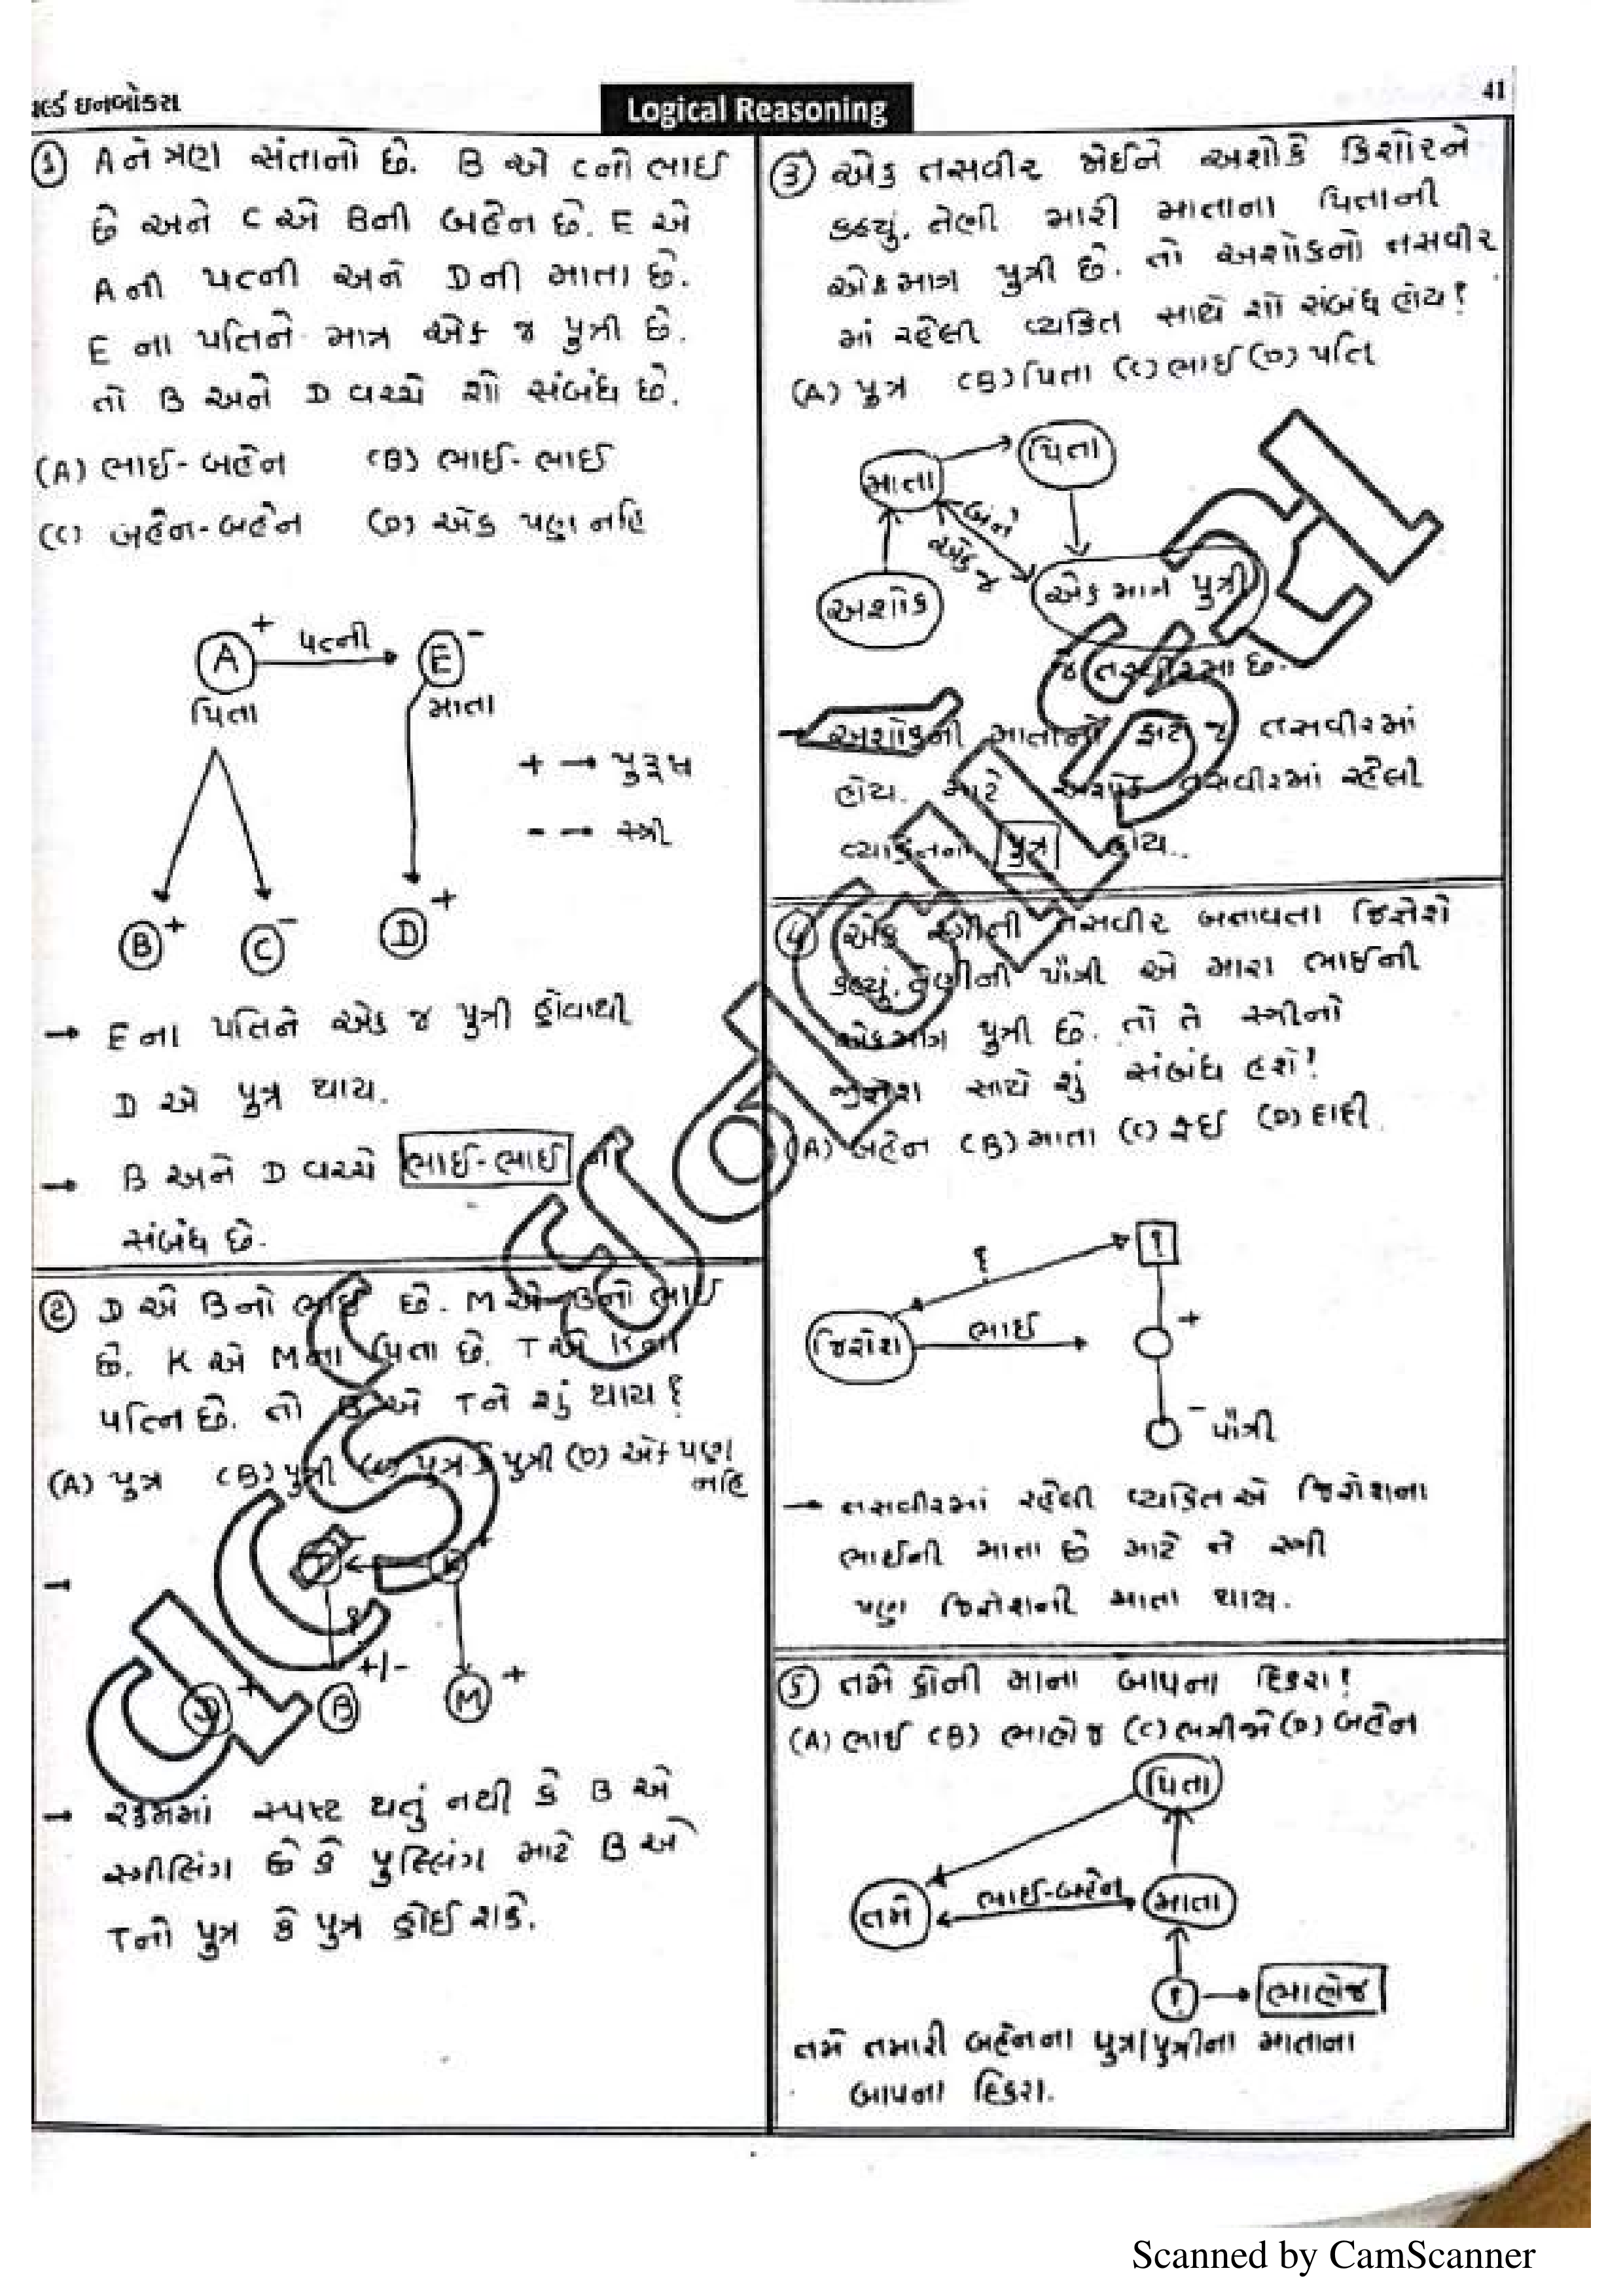 ર્લ્ડ ઇનબોક્સ
Logical Reasoning
41
① A ને ત્રણ સંતાનો છે. B એ C નો ભાઈ
છે અને C એ B ની બહેન છે. E એ
A ની પત્ની અને D ની માતા છે.
E ના પતિને માત્ર એક જ પુત્રી છે.
તો B અને D વચ્ચે શો સંબંધ છે.
(A) ભાઈ-બહેન (B) ભાઈ-ભાઈ
(C) બહેન-બહેન (D) એક પણ નહિ
A + પત્ની E -
પિતા માતા
+ → પુરૂષ
- → સ્ત્રી
B + C - D +
→ E ના પતિને એક જ પુત્રી હોવાથી
D એ પુત્ર થાય.
→ B અને D વચ્ચે ભાઈ-ભાઈ
સંબંધ છે.
② D એ B નો ભાઈ છે. M એ B નો ભાઈ
છે. K એ M ના પિતા છે. T એ K ના
પત્નિ છે. તો B એ T ને શું થાય ?
(A) પુત્ર (B) પુત્રી (C) પુત્ર કે પુત્રી (D) એક પણ
નહિ
?
+/-
D + B M +
→ રકમમાં સ્પષ્ટ થતું નથી કે B એ
સ્ત્રીલિંગ છે કે પુલ્લિંગ માટે B એ
T નો પુત્ર કે પુત્ર હોઈ શકે.
③ એક તસવીર જોઈને અશોકે કિશોરને
કહ્યું, તેણી મારી માતાના પિતાની
એકમાત્ર પુત્રી છે. તો અશોકનો તસવીર
માં રહેલી વ્યકિત સાથે શો સંબંધ હોય?
(A) પુત્ર (B) પિતા (C) ભાઈ (D) પતિ
પિતા
માતા
બંને
એક જ
અશોક
એક માત્ર પુત્રી
જે તસવીરમાં છે.
→ અશોકની માતાનો ફોટો જ તસવીરમાં
હોય. માટે અશોક તસવીરમાં રહેલી
વ્યકિતનો પુત્ર હોય.
④ એક સ્ત્રીની તસવીર બતાવતા જિજ્ઞેશે
કહ્યું, તેણીની પૌત્રી એ મારા ભાઈની
એકમાત્ર પુત્રી છે. તો તે સ્ત્રીનો
જીજ્ઞેશ સાથે શું સંબંધ હશે?
(A) બહેન (B) માતા (C) ફઈ (D) દાદી
?
?
જિજ્ઞેશ ભાઈ +
- પૌત્રી
→ તસવીરમાં રહેલી વ્યકિત એ જિજ્ઞેશના
ભાઈની માતા છે માટે તે સ્ત્રી
પણ જિજ્ઞેશની માતા થાય.
⑤ તમે કોની માના બાપના દિકરા?
(A) ભાઈ (B) ભાણેજ (C) ભત્રીજો (D) બહેન
પિતા
તમે ભાઈ-બહેન માતા
? → ભાણેજ
તમે તમારી બહેનના પુત્ર/પુત્રીના માતાના
બાપના દિકરા.
Scanned by CamScanner